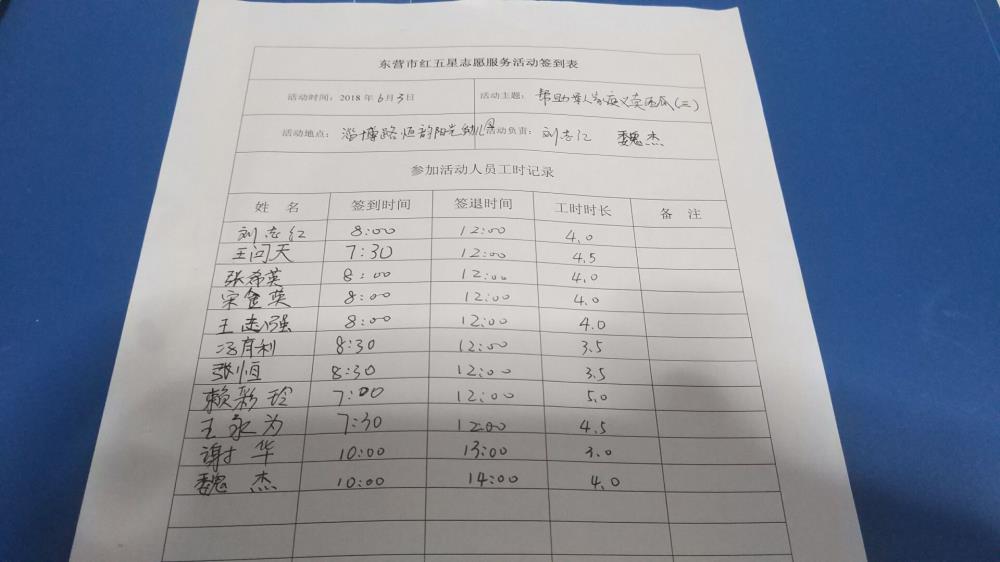 东营市红五星志愿服务活动签到表
活动时间：2018年6月3日 活动主题：帮助军人家庭义卖西瓜(三)
活动地点：淄博路恒韵阳光幼儿园 活动负责：刘志红 魏杰
参加活动人员工时记录
姓名 签到时间 签退时间 工时时长 备注
刘志红 8:00 12:00 4.0
王问天 7:30 12:00 4.5
张希英 8:00 12:00 4.0
宋金英 8:00 12:00 4.0
王志强 8:00 12:00 4.0
冯有利 8:30 12:00 3.5
张恒 8:30 12:00 3.5
赖彩玲 7:00 12:00 5.0
王永为 7:30 12:00 4.5
谢华 10:00 13:00 3.0
魏杰 10:00 14:00 4.0